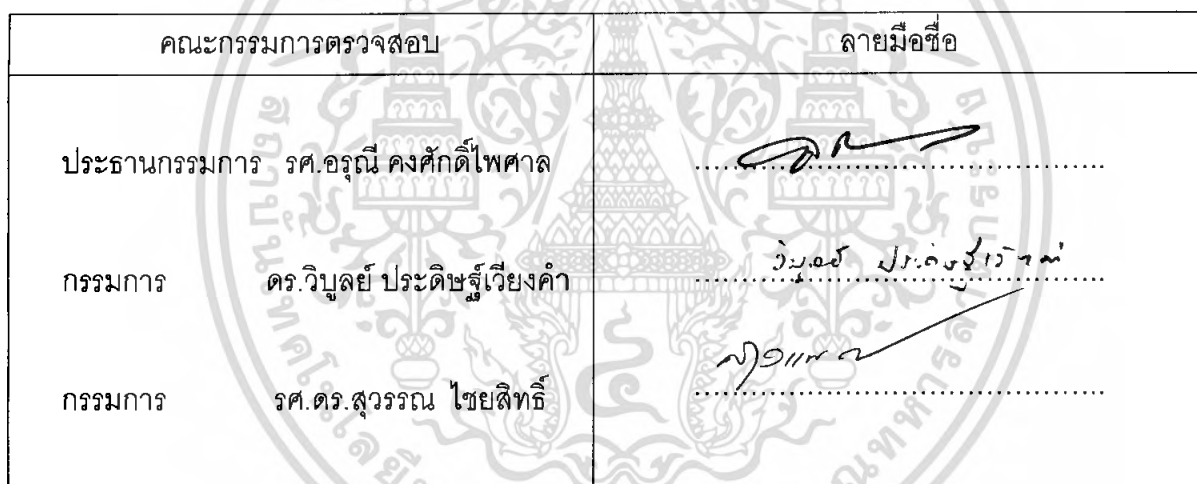 คณะกรรมการตรวจสอบ ลายมือชื่อ
ประธานกรรมการ รศ.อรุณี คงศักดิ์ไพศาล
กรรมการ ดร.วิบูลย์ ประดิษฐ์เวียงคำ
วิบูลย์ ประดิษฐ์เวียงคำ
กรรมการ รศ.ดร.สุวรรณ ไชยสิทธิ์